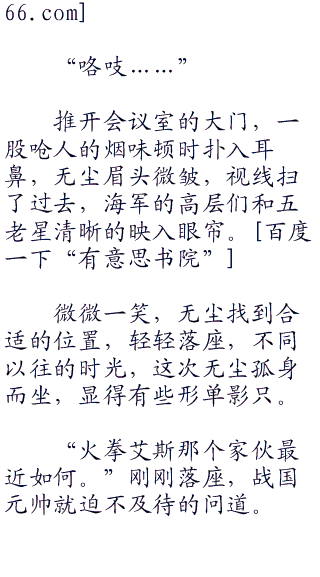 66.com]
“咯吱……”
推开会议室的大门，一
股呛人的烟味顿时扑入耳
鼻，无尘眉头微皱，视线扫
了过去，海军的高层们和五
老星清晰的映入眼帘。[百度
一下“有意思书院”]
微微一笑，无尘找到合
适的位置，轻轻落座，不同
以往的时光，这次无尘孤身
而坐，显得有些形单影只。
“火拳艾斯那个家伙最
近如何。”刚刚落座，战国
元帅就迫不及待的问道。